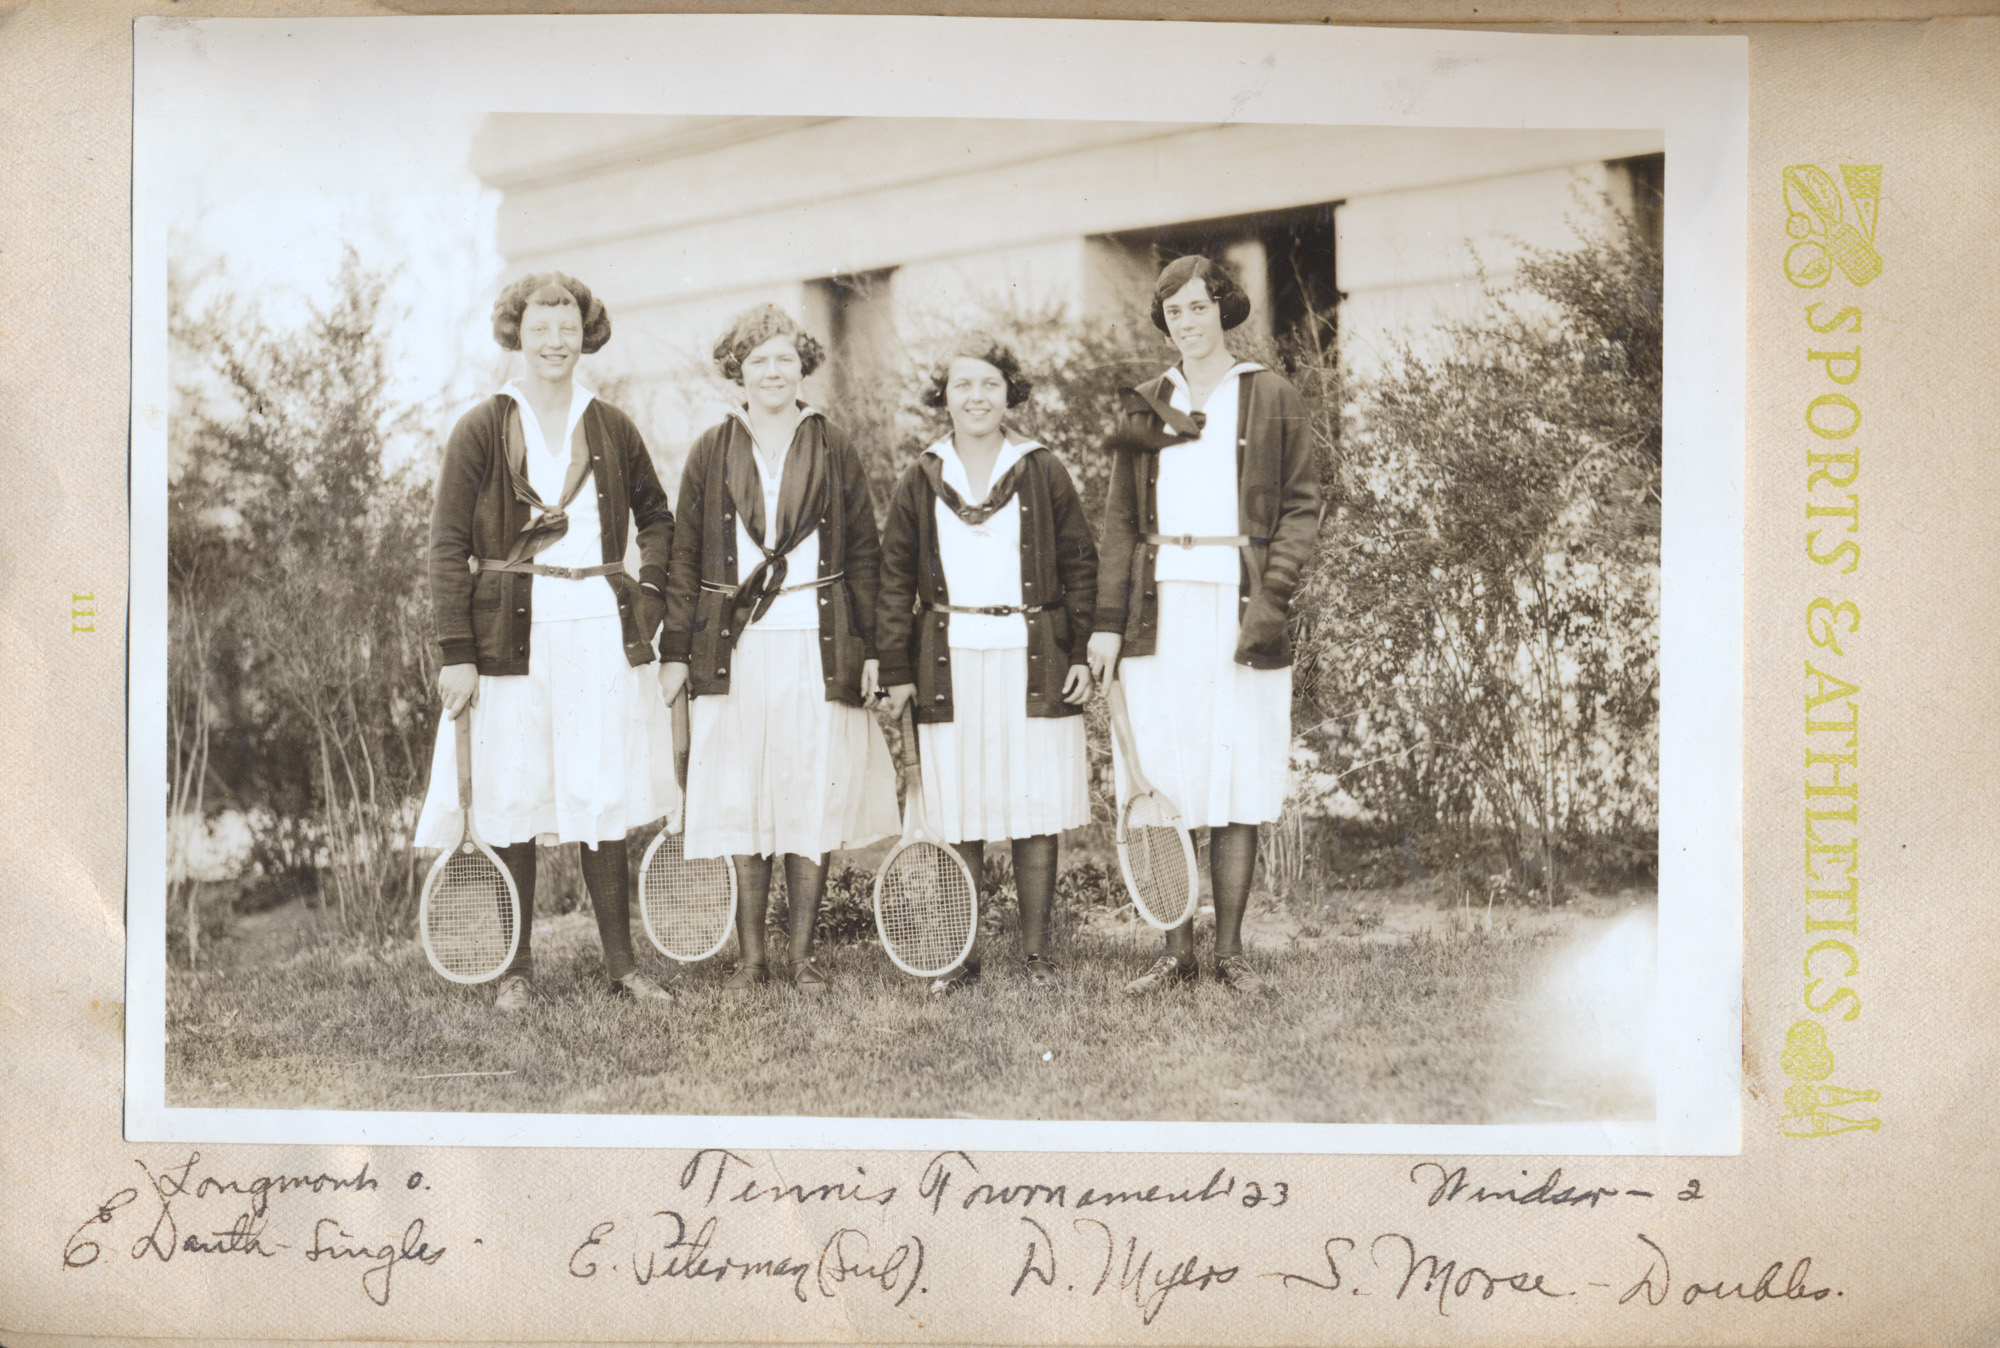 SPORTS & ATHLETICS
111
Longmont 0. Tennis Tournament '23 Windsor - 2
E. Dauth - Singles. E. Peterman (Sub). D. Myers - S. Morse. - Doubles.